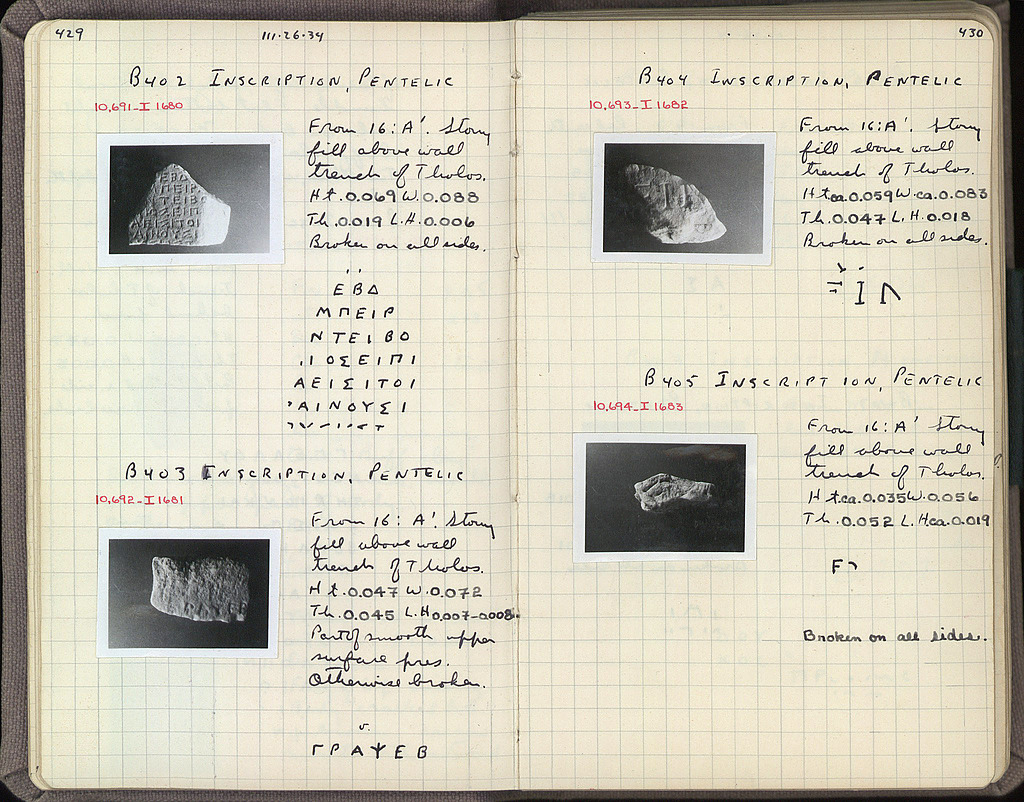 429
111·26·34
B402 INSCRIPTION, PENTELIC
10,691-I 1680
From 16:A'. Stony
fill above wall
trench of Tholos.
Ht. 0.069 W. 0.088
Th. 0.019 L.H. 0.006
Broken on all sides.
ΕΒΔ
ΜΠΕΙΡ
ΝΤΕΙΒΟ
ΙΟΣΕΙΠΙ
ΑΕΙΣΙΤΟΙ
ΑΙΝΟΥΣΙ
B403 INSCRIPTION, PENTELIC
10,692-I 1681
From 16: A'. Stony
fill above wall
trench of Tholos.
Ht. 0.047 W. 0.072
Th. 0.045 L.H 0.007-0.008.
Part of smooth upper
surface pres.
Otherwise broken.
v.
ΓΡΑΨΕΒ
430
B404 INSCRIPTION, PENTELIC
10,693-I 1682
From 16:A'. Stony
fill above wall
trench of Tholos.
Ht ca. 0.059 W. ca. 0.083
Th. 0.047 L.H. 0.018
Broken on all sides.
B405 INSCRIPTION, PENTELIC
10,694-I 1683
From 16:A' Stony
fill above wall
trench of Tholos.
Ht. ca. 0.035 W. 0.056
Th. 0.052 L.H. ca. 0.019
Broken on all sides.